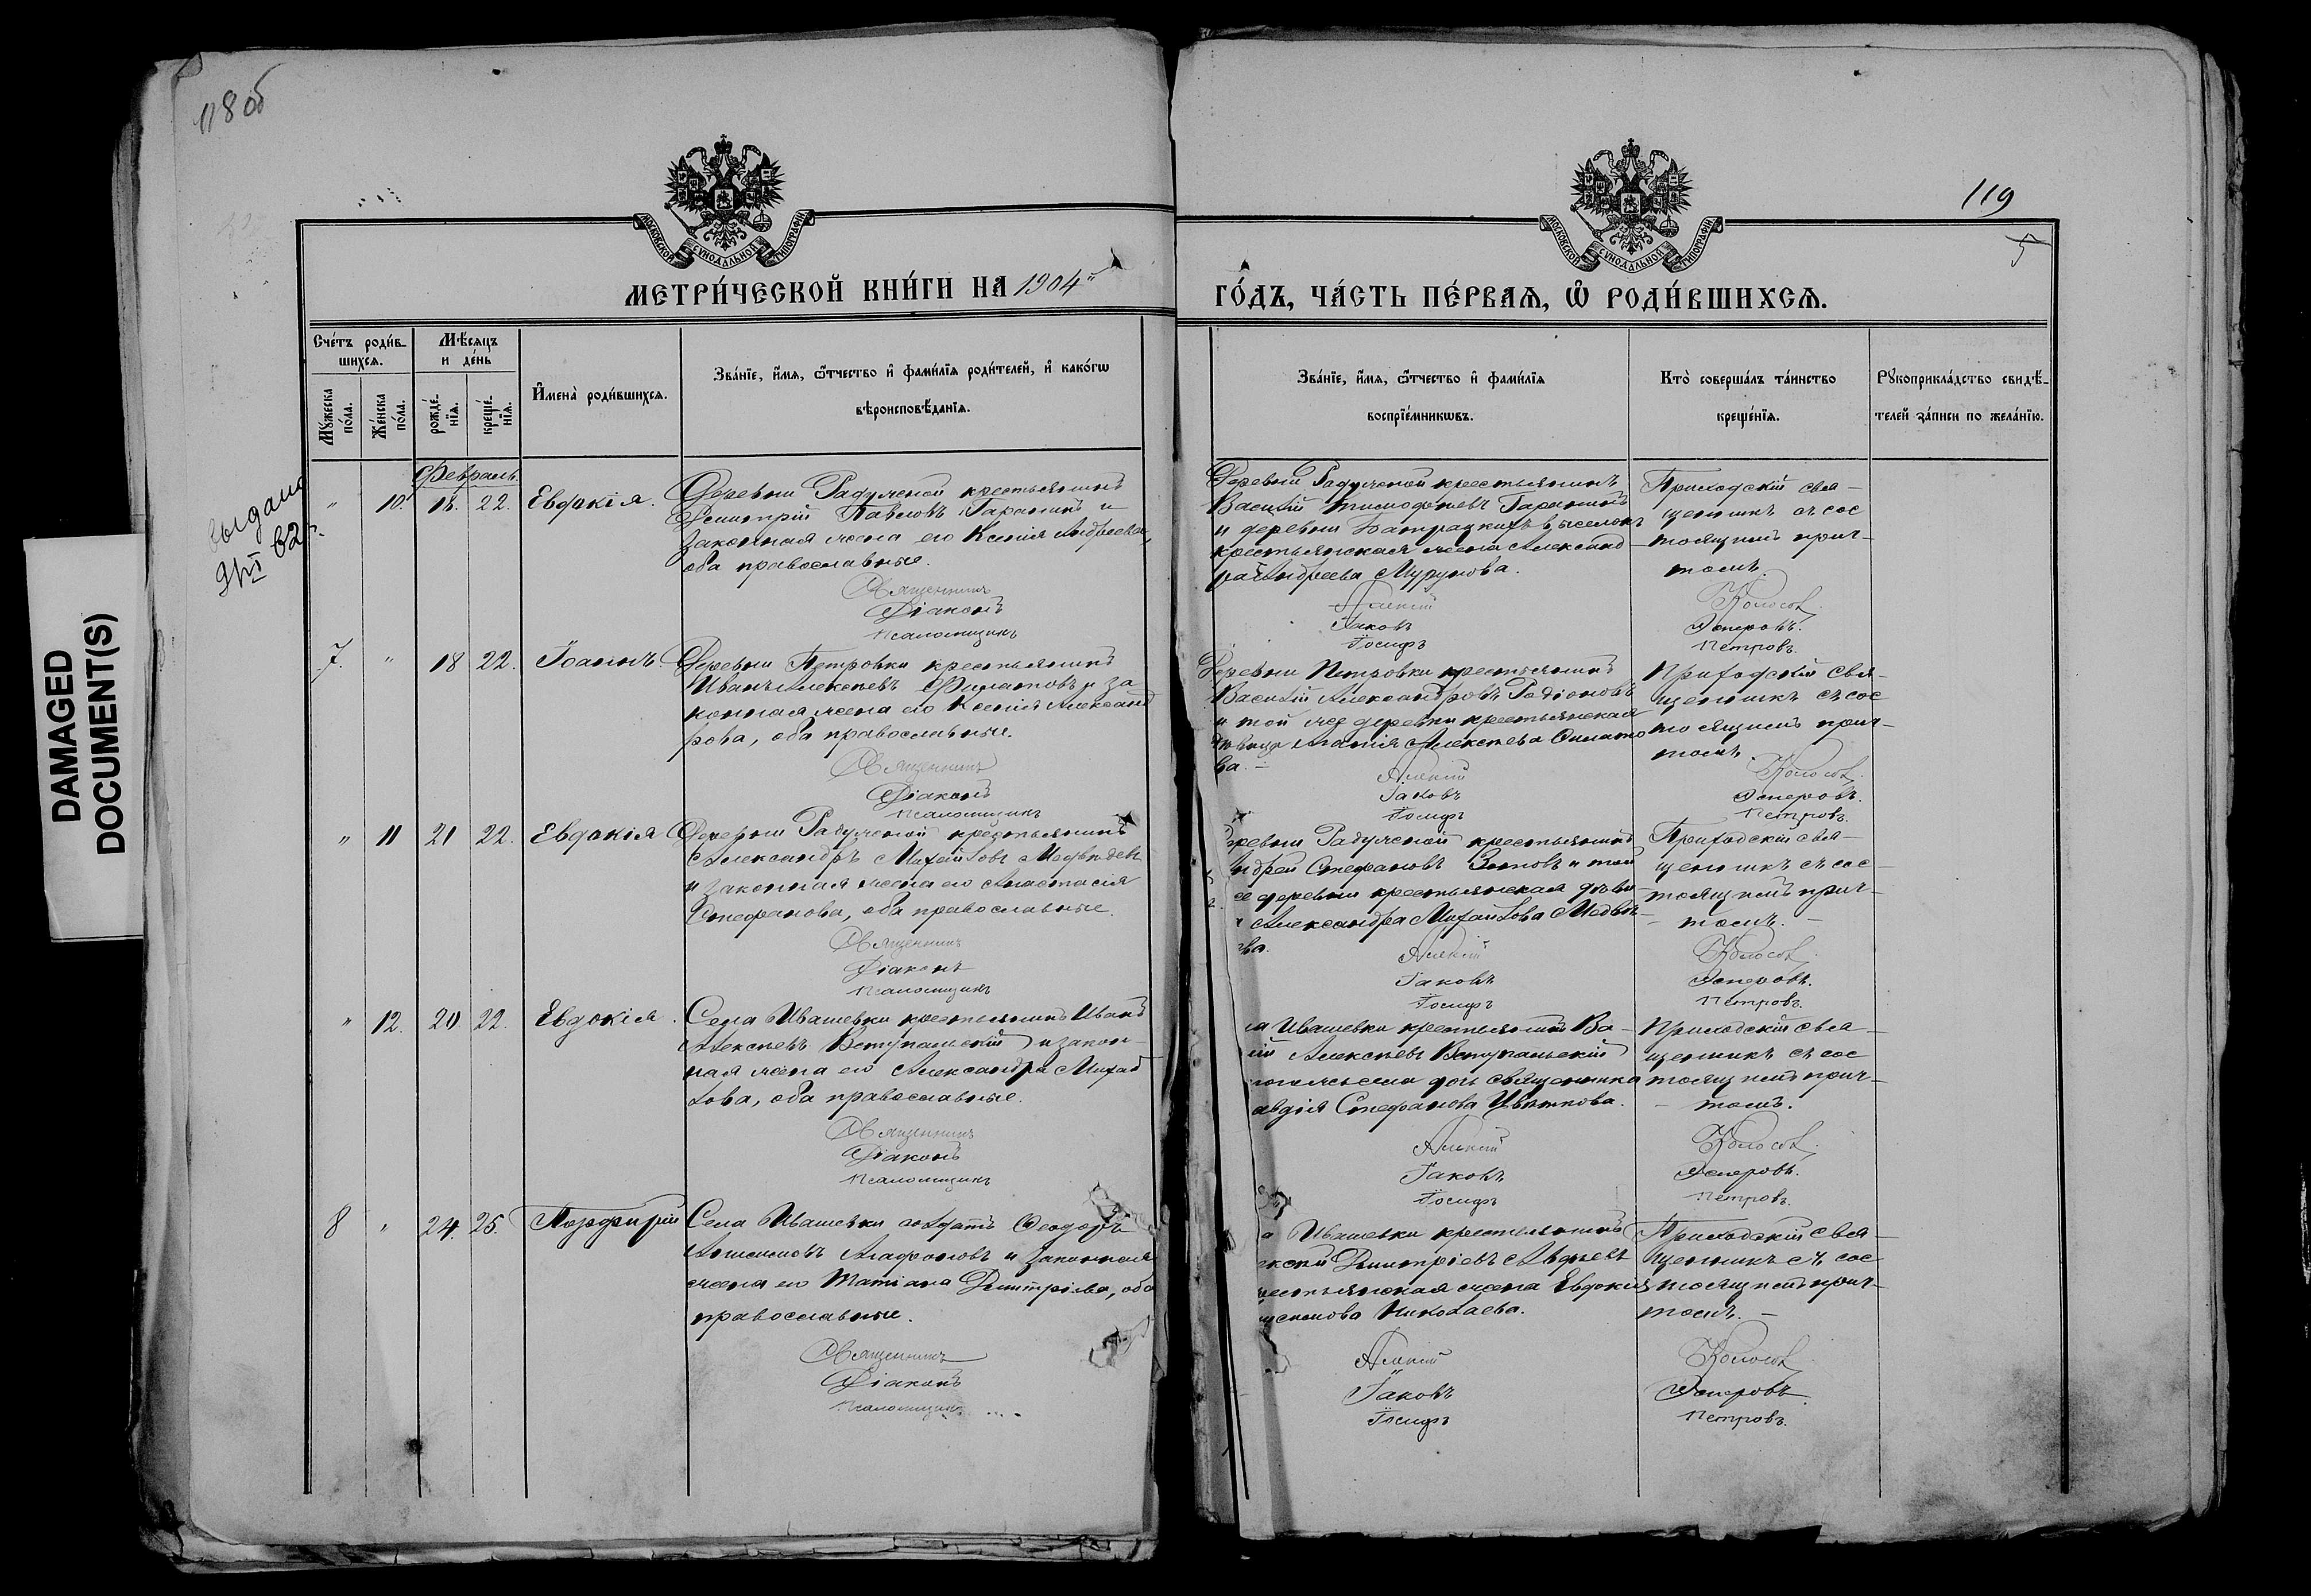 118 об
119
5
МОСКОВСКОЙ СУНОДАЛЬНОЙ ТИПОГРАФІИ
МОСКОВСКОЙ СУНОДАЛЬНОЙ ТИПОГРАФІИ
МЕТРИ́ЧЕСКОЙ КНИ́ГИ НА 1904 ГО́ДЪ, ЧА́СТЬ ПЕ́РВАѦ, Ѽ РОДИ́ВШИХСѦ.
Сче́тъ роди́в-
шихсѧ.
Мꙋ́жеска по́ла.
Же́нска по́ла.
Мѣ́сѧцъ
и де́нь
рожде́-
нїѧ.
креще́-
нїѧ.
И҆мена̀ роди́вшихсѧ.
Зва́нїе, и҆́мѧ, ѻ҆́тчество и҆ фами́лїѧ роди́телей, и҆ како́гѡ
вѣроисповѣ́данїѧ.
Зва́нїе, и҆́мѧ, ѻ҆́тчество и҆ фами́лїѧ
воспрїе́мникѡвъ.
Кто̀ соверша́лъ та́инство
креще́нїѧ.
Рꙋкоприкла́дство свидѣ́-
телей за́писи по жела́нїю.
DAMAGED
DOCUMENT(S)
выдано
62 г.
Февраль
" 10. 18. 22. Евдокія.
Деревни Радушной крестьянинъ
Димитрій Павловъ Гаранинъ и
законная жена его Ксенія Андреева,
оба православные.
Священникъ
Діаконъ
Псаломщикъ
Деревни Радушной крестьянинъ
Василій Тимофеевъ Гаранинъ
и деревни выселокъ
крестьянская жена Александ-
ра Андреева Мурунова.
Алексій
Іаковъ
Іосифъ
Приходскій свя-
щенникъ съ сос
тоящимъ прич-
томъ.
Колосов
Эсперовъ.
Петровъ.
7. " 18 22. Іоаннъ.
Деревни Петровки крестьянинъ
Иванъ Алексѣевъ Филатовъ и за
конная жена его Ксенія Александ
рова, оба православные.
Священникъ
Діаконъ
Псаломщикъ
Деревни Петровки крестьянинъ
Василій Александровъ Родіоновъ
и той же деревни крестьянская
дѣвица Алексѣева Филато
ва.
Алексій
Іаковъ
Іосифъ
Приходскій свя-
щенникъ съ сос
тоящимъ прич-
томъ.
Колосов
Эсперовъ.
Петровъ.
" 11 21 22. Евдокія
Деревни Радушной крестьянинъ
Александръ Михайловъ Медвѣдевъ
и законная жена его Анастасія
Стефанова, оба православные.
Священникъ
Діаконъ
Псаломщикъ
ревни Радушной крестьянинъ
ндрей Стефановъ Зотовъ и той
се деревни крестьянская дѣви-
Александра Михайлова Медвѣ-
ва.
Алексій
Іаковъ
Іосифъ
Приходскій свя-
щенникъ съ сос-
тоящимъ прич-
томъ.
Колосов
Эсперовъ.
Петровъ.
" 12. 20 22. Евдокія.
Села Ивашевки крестьянинъ Иванъ
Алексѣевъ Вступальскій и закон-
ная жена его Александра Михай
лова, оба православные.
Священникъ
Діаконъ
Псаломщикъ
ла Ивашевки крестьянинъ Ва-
ій Алексѣевъ Вступальскій
тогоже села дочь священника
авдія Стефанова Цвѣткова.
Алексій
Іаковъ
Іосифъ
Приходскій свя-
щенникъ съ сос
тоящимъ прич-
томъ.
Колосов
Эсперовъ.
Петровъ.
8 " 24. 25. Порфирій
Села Ивашевки солдатъ Феодоръ
Агафоновъ и законная
жена его Татіана Димитріева, оба
православные.
Священникъ
Діаконъ
Псаломщикъ
а Ивашевки крестьянинъ
Димитріевъ
рестьянская жена Евдокія
Николаева.
Алексій
Іаковъ
Іосифъ
Приходскій свя-
щенникъ съ сос
тоящимъ прич-
томъ.
Колосов
Эсперовъ.
Петровъ.